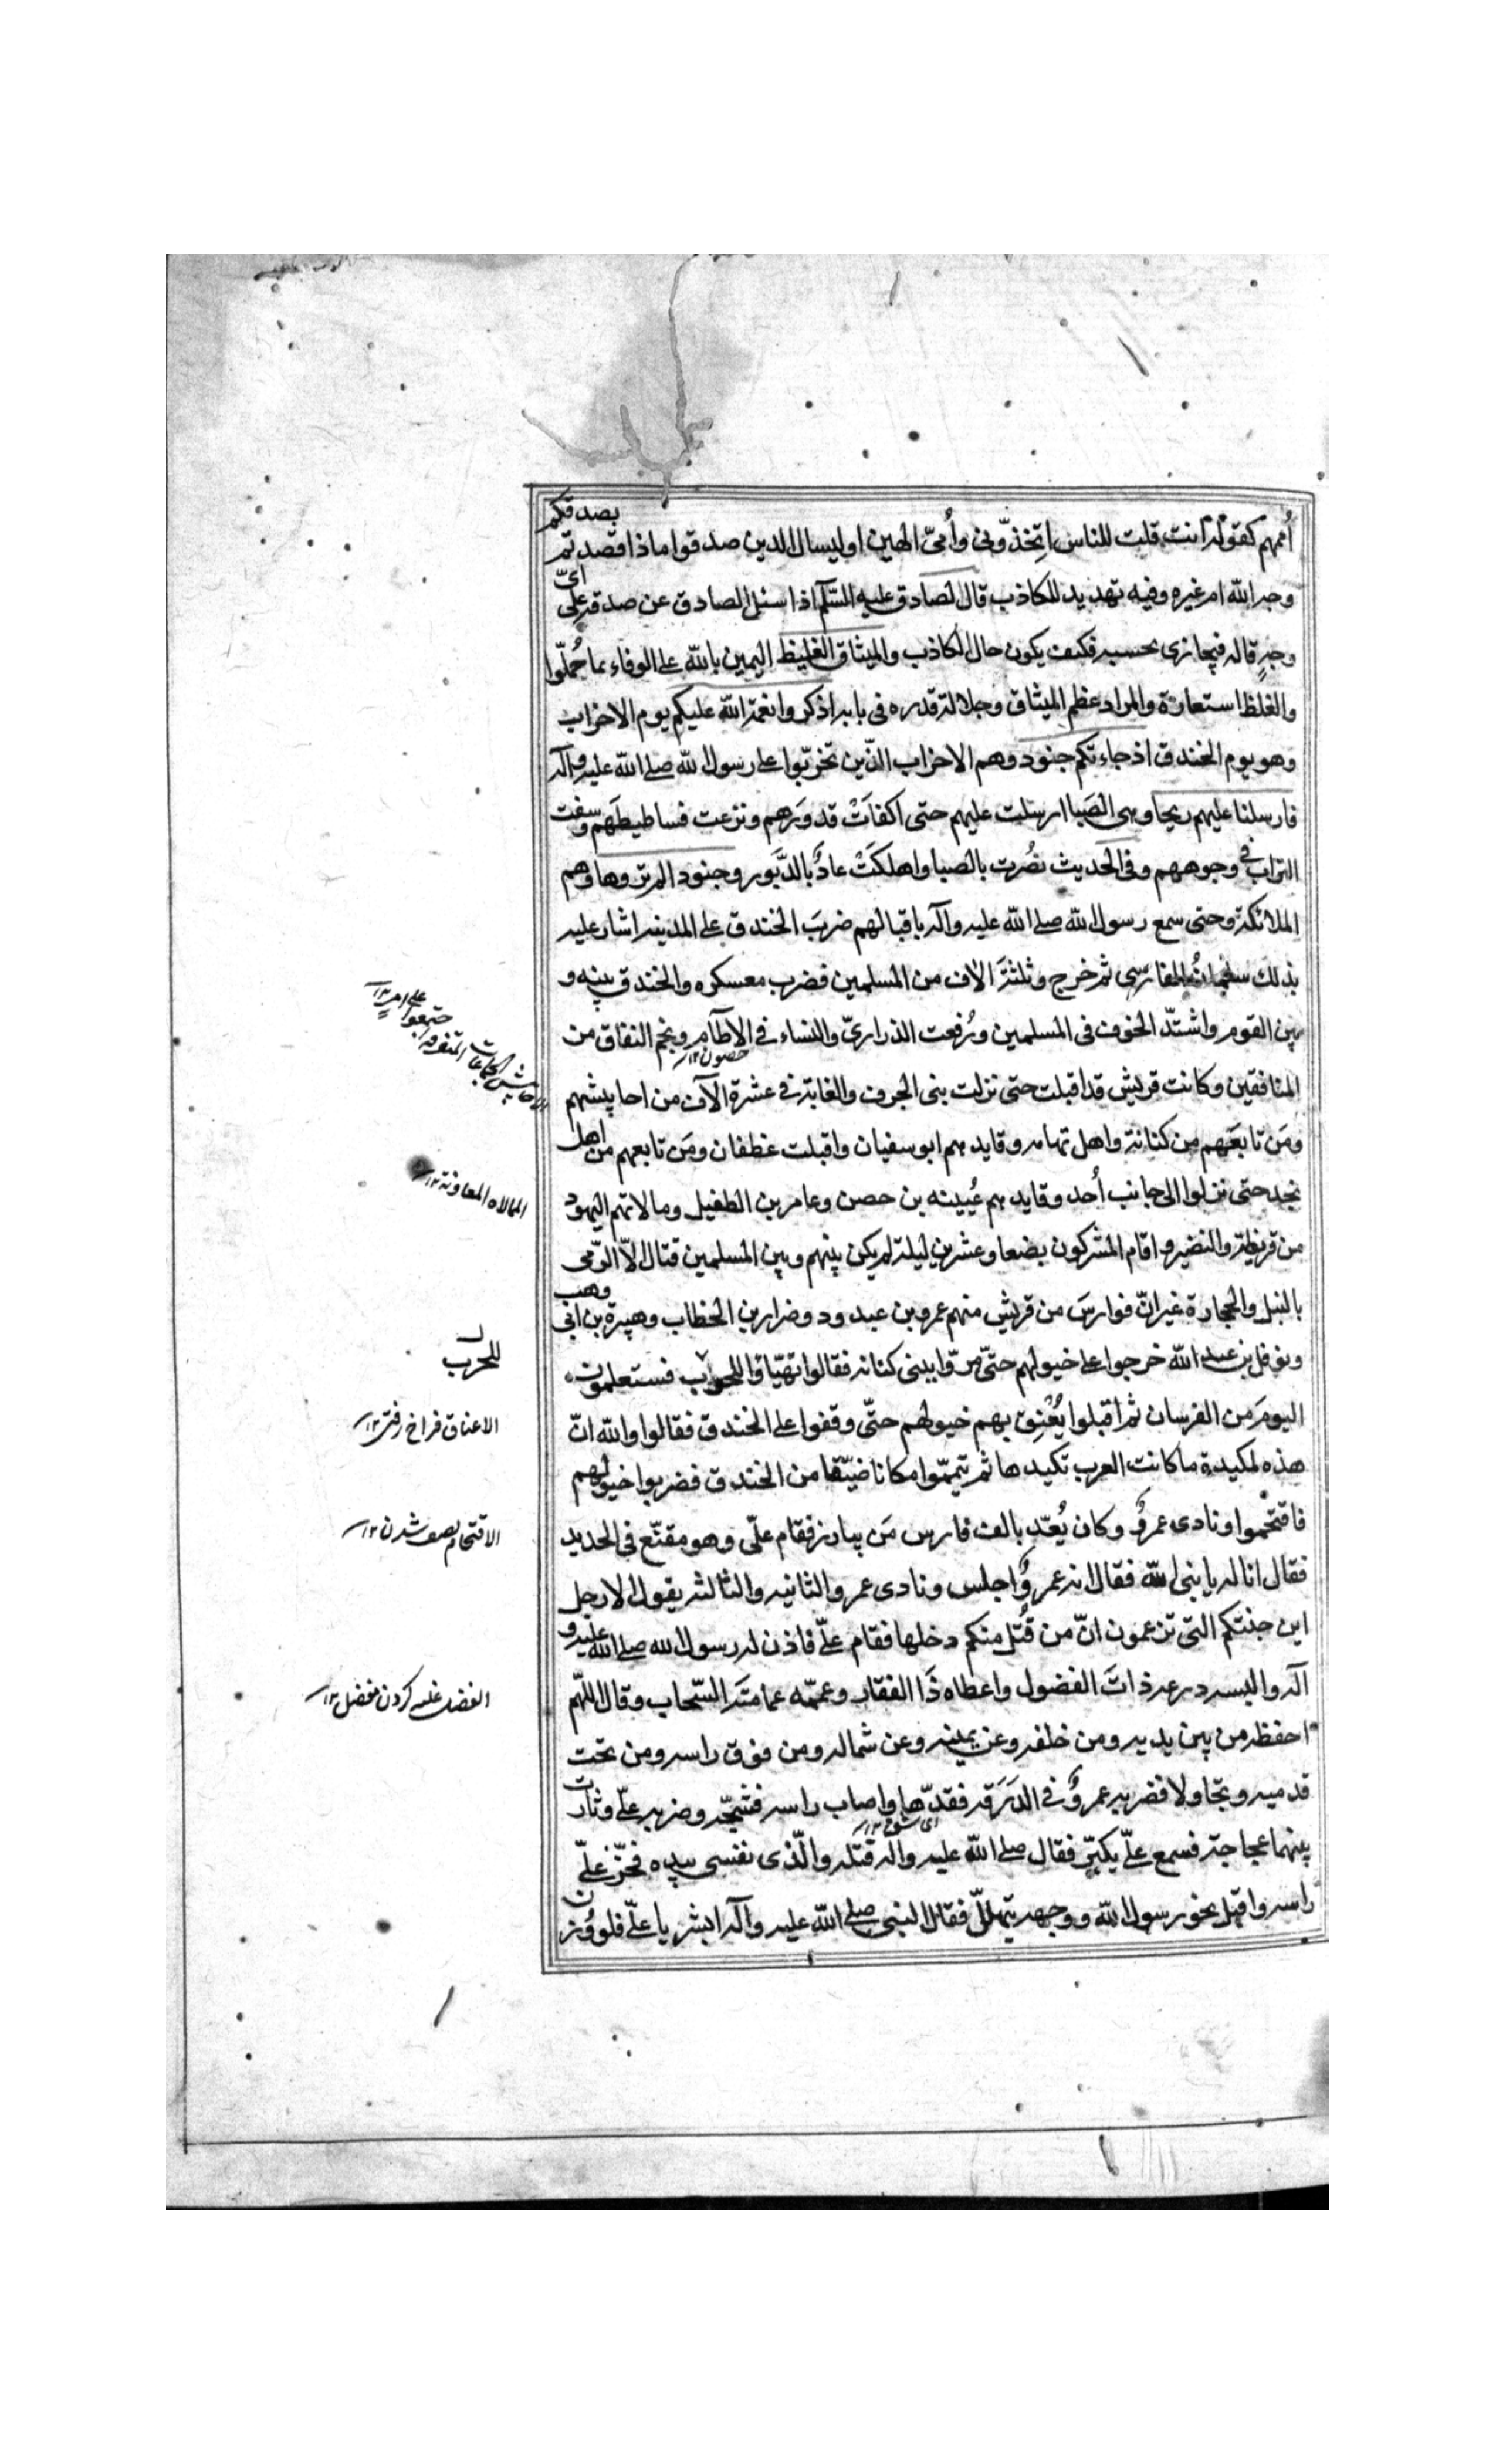 أممهم كقوله أانت قلت للناس اتخذوني وأمي الهين او ليسال الذين صدقوا ماذا قصدتم بصدقكم
وجه الله ام غيره وفيه تهديد للكاذب قال الصادق عليه السلم اذا سئل الصادق عن صدقه على اي
وجه قاله فيجازى بحسبه فكيف يكون حال الكاذب والميثاق الغليظ اليمين بالله على الوفاء بما حملوا
والغلظ استعارة والمراد عظم الميثاق وجلالة قدره في بابه اذكروا نعمة الله عليكم يوم الاحزاب
وهو يوم الخندق اذ جاءتكم جنود وهم الاحزاب الذين تحزبوا على رسول الله صلى الله عليه وآله
فارسلنا عليهم ريحا وهي الصبا ارسلت عليهم حتى اكفات قدورهم ونزعت فساطيطهم وسفت
التراب في وجوههم وفي الحديث نصرت بالصبا واهلكت عاد بالدبور وجنودا لم تروها وهم
الملائكة وحتى سمع رسول الله صلى الله عليه وآله باقبالهم ضرب الخندق على المدينه اشار عليه
بذلك سلمان الفارسي ثم خرج وثلثة الاف من المسلمين فضرب معسكره والخندق بينه و
بين القوم واشتد الخوف في المسلمين ورفعت الذراري والنساء في الاطام ونجم النفاق من
حصون ١٢
المنافقين وكانت قريش قد اقبلت حتى نزلت بنى الجرف والغابة في عشرة الآف من احابيشهم
ومن تابعهم من كنانة واهل تهامه وقايدهم ابو سفيان واقبلت غطفان ومن تابعهم من اهل
نجد حتى نزلوا الى جانب أحد وقايدهم عيينه بن حصن وعامر بن الطفيل ومالاتهم اليهود
من قريظة والنضير واقام المشركون بضعا وعشرين ليلة لم يكن بينهم وبين المسلمين قتال الا الرمى
بالنبل والحجارة غير ان فوارس من قريش منهم عمرو بن عبد ود وضرار بن الخطاب وهبيرة بن ابى وهب
ونوفل بن عبد الله خرجوا على خيولهم حتى مروا ببنى كنانه فقالوا تهياوا فستعلمون
اليوم من الفرسان ثم اقبلوا يعنق بهم خيولهم حتى وقفوا على الخندق فقالوا والله ان
هذه لمكيدة ما كانت العرب تكيدها ثم تيمموا مكانا ضيقا من الخندق فضربوا خيولهم
فاقتحموا ونادى عمرو وكان يعد بالف فارس من يبارز فقام على وهو مقنع في الحديد
فقال انا له يا نبى الله فقال انه عمرو اجلس ونادى عمرو الثانيه والثالثه يقول الا رجل
اين جنتكم التى تزعمون ان من قتل منكم دخلها فقام على فاذن له رسول الله صلى الله عليه و
آله والبسه درعه ذات الفضول واعطاه ذا الفقار وعممه عمامته السحاب وقال اللهم
احفظه من بين يديه ومن خلفه وعن يمينه وعن شماله ومن فوق راسه ومن تحت
قدميه وتجاولا فضربه عمرو في الدرقه فقدها واصاب راسه فشجه وضربه على وثارت
اى شق ١٢
بينهما عجاجة فسمع على يكبر فقال صلى الله عليه واله قتله والذى نفسى بيده فحز على
راسه واقبل نحو رسول الله ووجهه يتهلل فقال النبى صلى الله عليه وآله ابشر يا على فلو وزن
الجماعات المتفرقه اجتمعوا على امر ١٢
الممالاه المعاونة ١٢
للحرب
الاعناق فراخ رفتن ١٢
الاقتحام شدن ١٢
الفضل غلبه كردن بفضل ١٢